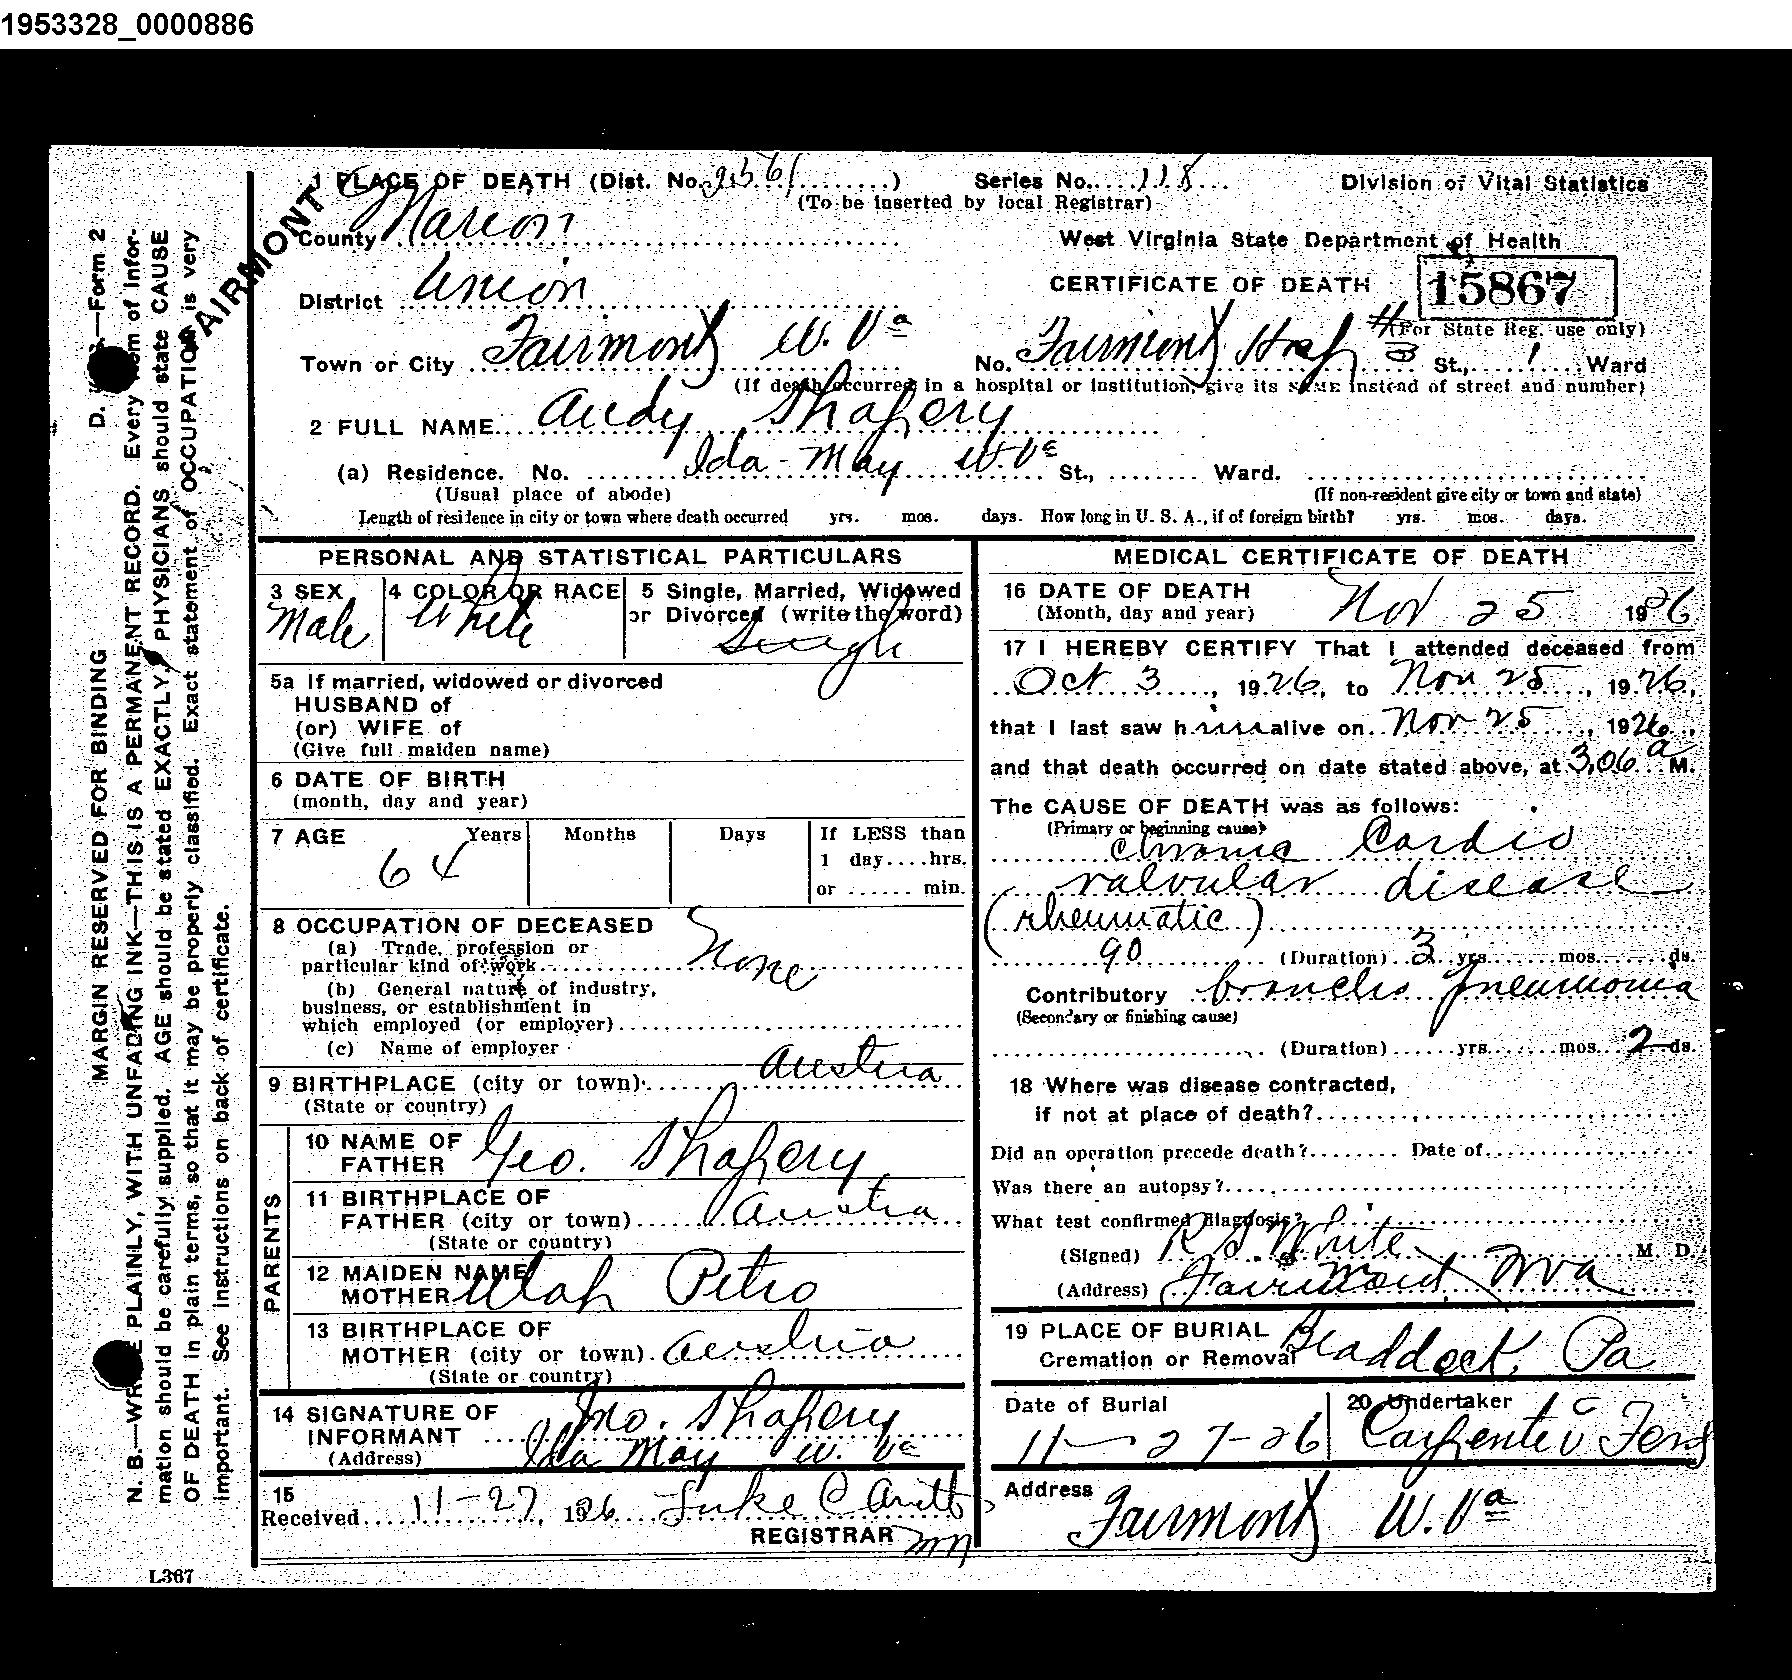 1953328_0000886
1 PLACE OF DEATH (Dist. No. 2561) Series No. 118 Division of Vital Statistics
(To be inserted by local Registrar)
FAIRMONT
County Marion
West Virginia State Department of Health
CERTIFICATE OF DEATH
15867
(For State Reg. use only)
District Union
Town or City Fairmont W. Va No. Fairmont Hosp #3 St., 1 Ward
(If death occurred in a hospital or institution, give its NAME instead of street and number)
2 FULL NAME Andy Shafery
(a) Residence. No. Ida-May W. Va St., Ward.
(Usual place of abode) (If non-resident give city or town and state)
Length of residence in city or town where death occurred yrs. mos. days. How long in U. S. A., if of foreign birth? yrs. mos. days.
PERSONAL AND STATISTICAL PARTICULARS
3 SEX
Male
4 COLOR OR RACE
White
5 Single, Married, Widowed
or Divorced (write the word)
Single
5a If married, widowed or divorced
HUSBAND of
(or) WIFE of
(Give full maiden name)
6 DATE OF BIRTH
(month, day and year)
7 AGE Years Months Days If LESS than
1 day....hrs.
or ...... min.
64
8 OCCUPATION OF DECEASED
(a) Trade, profession or
particular kind of work None
(b) General nature of industry,
business, or establishment in
which employed (or employer)
(c) Name of employer
9 BIRTHPLACE (city or town) Austria
(State or country)
PARENTS
10 NAME OF
FATHER Geo. Shafery
11 BIRTHPLACE OF
FATHER (city or town) Austria
(State or country)
12 MAIDEN NAME
MOTHER Petro
13 BIRTHPLACE OF
MOTHER (city or town) Austria
(State or country)
14 SIGNATURE OF
INFORMANT Jno. Shafery
(Address) Ida May W. Va
15
Received 11-27, 1926 Luke C
REGISTRAR
MEDICAL CERTIFICATE OF DEATH
16 DATE OF DEATH
(Month, day and year) Nov 25 1926
17 I HEREBY CERTIFY That I attended deceased from
Oct 3, 1926, to Nov 25, 1926,
that I last saw him alive on Nov 25, 1926,
and that death occurred on date stated above, at 3,06 a M.
The CAUSE OF DEATH was as follows:
(Primary or beginning cause)
Chronic Cardio
valvular disease
(rheumatic)
90 (Duration) 3 yrs. mos. ds.
Contributory broncho pneumonia
(Secondary or finishing cause)
(Duration) yrs. mos. 2 ds.
18 Where was disease contracted,
if not at place of death?
Did an operation precede death? Date of
Was there an autopsy?
What test confirmed diagnosis?
(Signed) White M. D.
(Address) Fairmont, W Va
19 PLACE OF BURIAL
Cremation or Removal Braddock, Pa
Date of Burial
11-27-26
20 Undertaker
Carpenter & Ford
Address
Fairmont W. Va
D. —Form 2
MARGIN RESERVED FOR BINDING
N. B.—WRITE PLAINLY, WITH UNFADING INK—THIS IS A PERMANENT RECORD. Every item of infor-
mation should be carefully supplied. AGE should be stated EXACTLY. PHYSICIANS should state CAUSE
OF DEATH in plain terms, so that it may be properly classified. Exact statement of OCCUPATION is very
important. See instructions on back of certificate.
L367